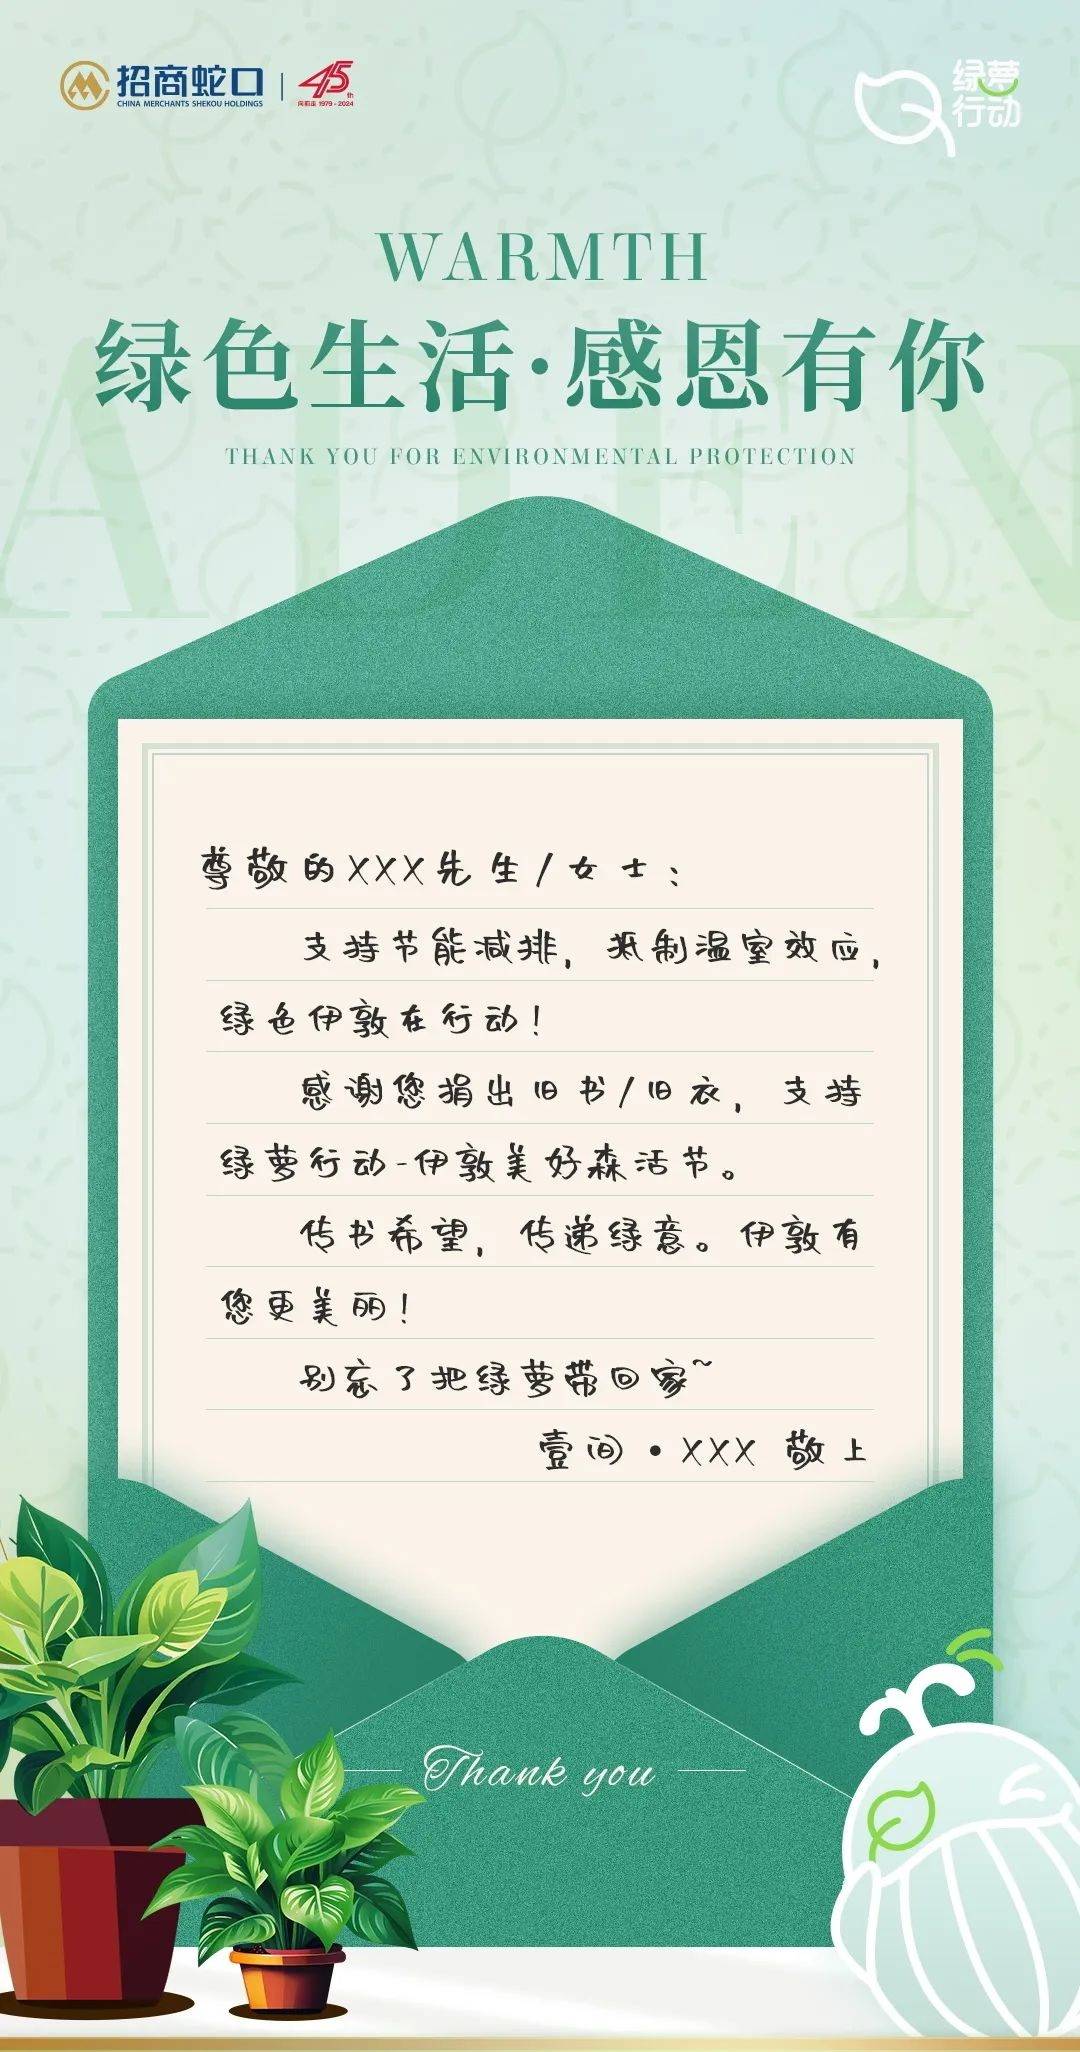 招商蛇口
CHINA MERCHANTS SHEKOU HOLDINGS
45th
向前走 1979-2024
绿萝
行动
WARMTH
绿色生活·感恩有你
THANK YOU FOR ENVIRONMENTAL PROTECTION
尊敬的XXX先生/女士：
支持节能减排，抵制温室效应，
绿色伊敦在行动！
感谢您捐出旧书/旧衣，支持
绿萝行动-伊敦美好森活节。
传书希望，传递绿意。伊敦有
您更美丽！
别忘了把绿萝带回家~
壹间·XXX 敬上
Thank you